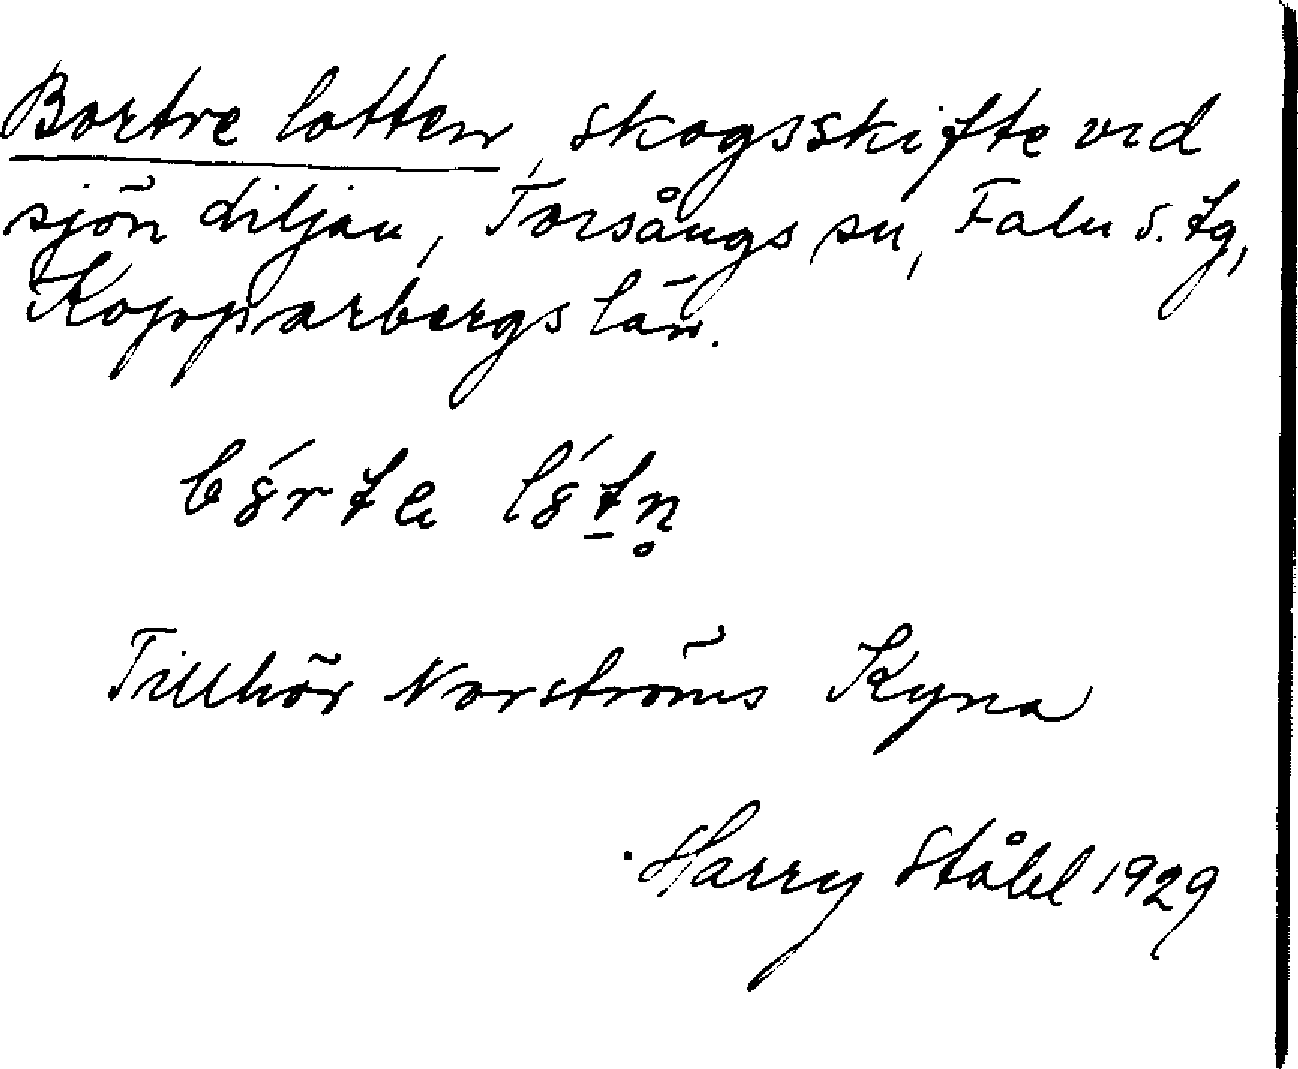 Bortre lotten, skogsskifte vid
sjön Liljan, Torsångs sn, Falu s. tg,
Kopparbergs län.
Tillhör Norströms Kyna
Harry Ståhl 1929